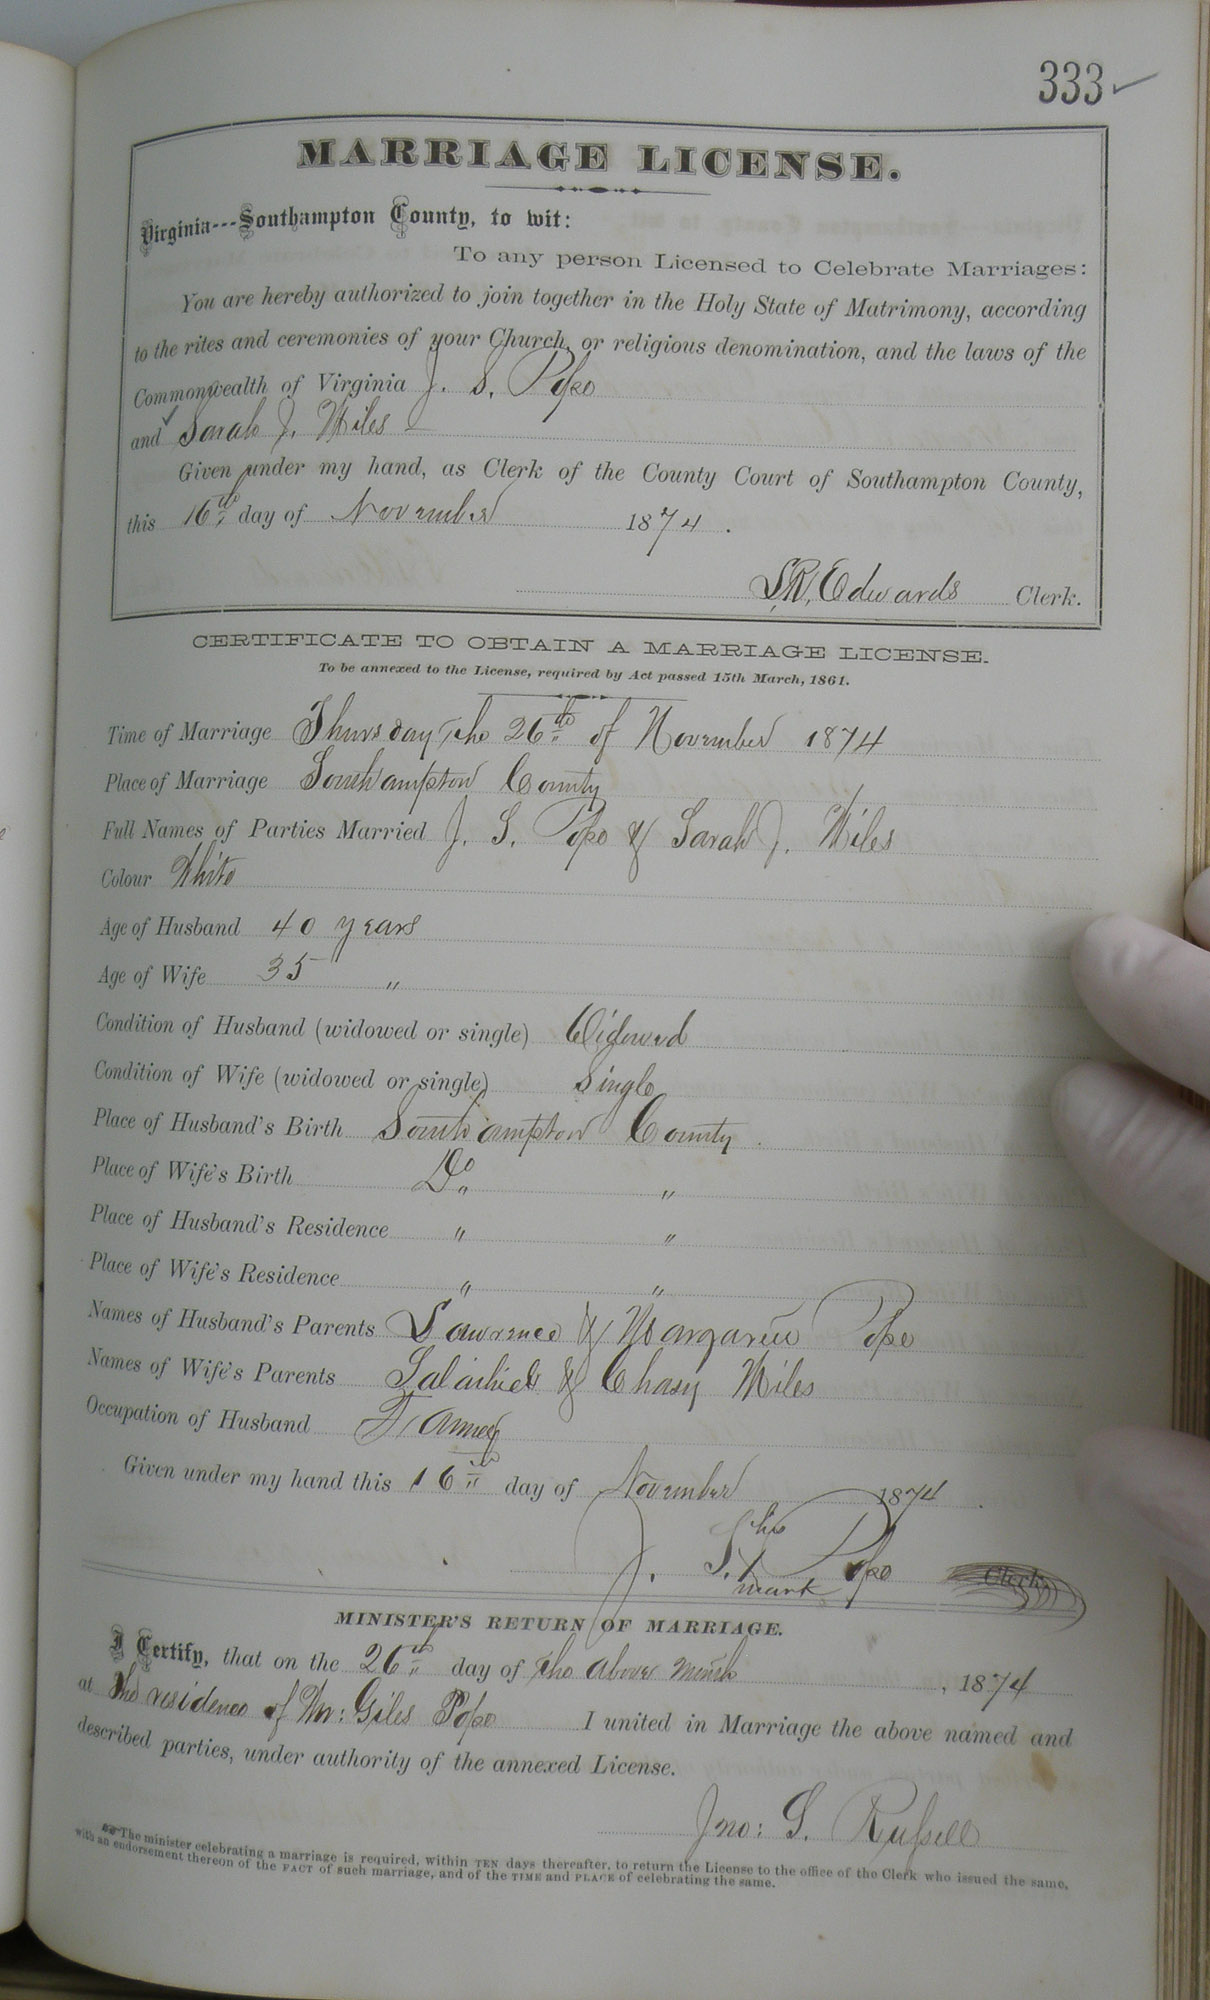 333
MARRIAGE LICENSE.
Virginia---Southampton County, to wit:
To any person Licensed to Celebrate Marriages:
You are hereby authorized to join together in the Holy State of Matrimony, according
to the rites and ceremonies of your Church, or religious denomination, and the laws of the
Commonwealth of Virginia J. S. Pope
and Sarah J. Wiles
Given under my hand, as Clerk of the County Court of Southampton County,
this 16th day of November 1874.
L.R. Edwards Clerk.
CERTIFICATE TO OBTAIN A MARRIAGE LICENSE.
To be annexed to the License, required by Act passed 15th March, 1861.
Time of Marriage Thursday the 26th of November 1874
Place of Marriage Southampton County
Full Names of Parties Married J. S. Pope & Sarah J. Wiles
Colour White
Age of Husband 40 years
Age of Wife 35 "
Condition of Husband (widowed or single) Widowed
Condition of Wife (widowed or single) Single
Place of Husband's Birth Southampton County.
Place of Wife's Birth Do "
Place of Husband's Residence " "
Place of Wife's Residence " "
Names of Husband's Parents Lawrence & Margaret Pope
Names of Wife's Parents & Chasy Wiles
Occupation of Husband Farmer
Given under my hand this 16th day of November 1874.
his
J. S. x Pope Clerk.
mark
MINISTER'S RETURN OF MARRIAGE.
I Certify, that on the 26th day of the above month, 1874
at the residence of Mr: Giles Pope I united in Marriage the above named and
described parties, under authority of the annexed License.
Jno: G. Russell
The minister celebrating a marriage is required, within TEN days thereafter, to return the License to the office of the Clerk who issued the same,
with an endorsement thereon of the FACT of such marriage, and of the TIME and PLACE of celebrating the same.